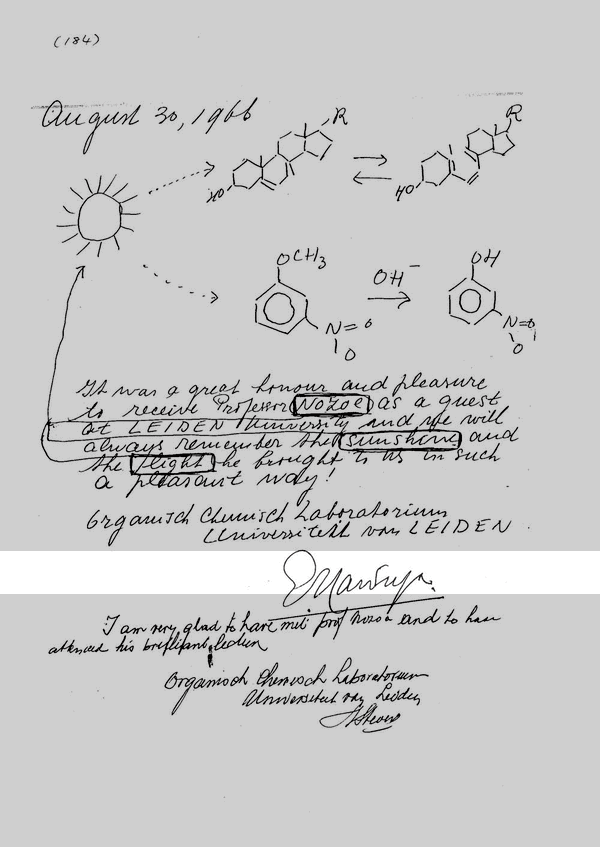 (184)
August 30, 1966
R
HO
R
HO
OCH3
N=O
O
OH-
OH
N=O
O
It was a great honour and pleasure
to receive Professor Nozoe as a guest
at LEIDEN University and we will
always remember the sunshine and
the flight he brought to us in such
a pleasant way!
Organisch Chemisch Laboratorium
Universiteit van LEIDEN
I am very glad to have met prof Nozoe and to have
attended his brilliant lecture
Organisch Chemisch Laboratorium
Universiteit van Leiden